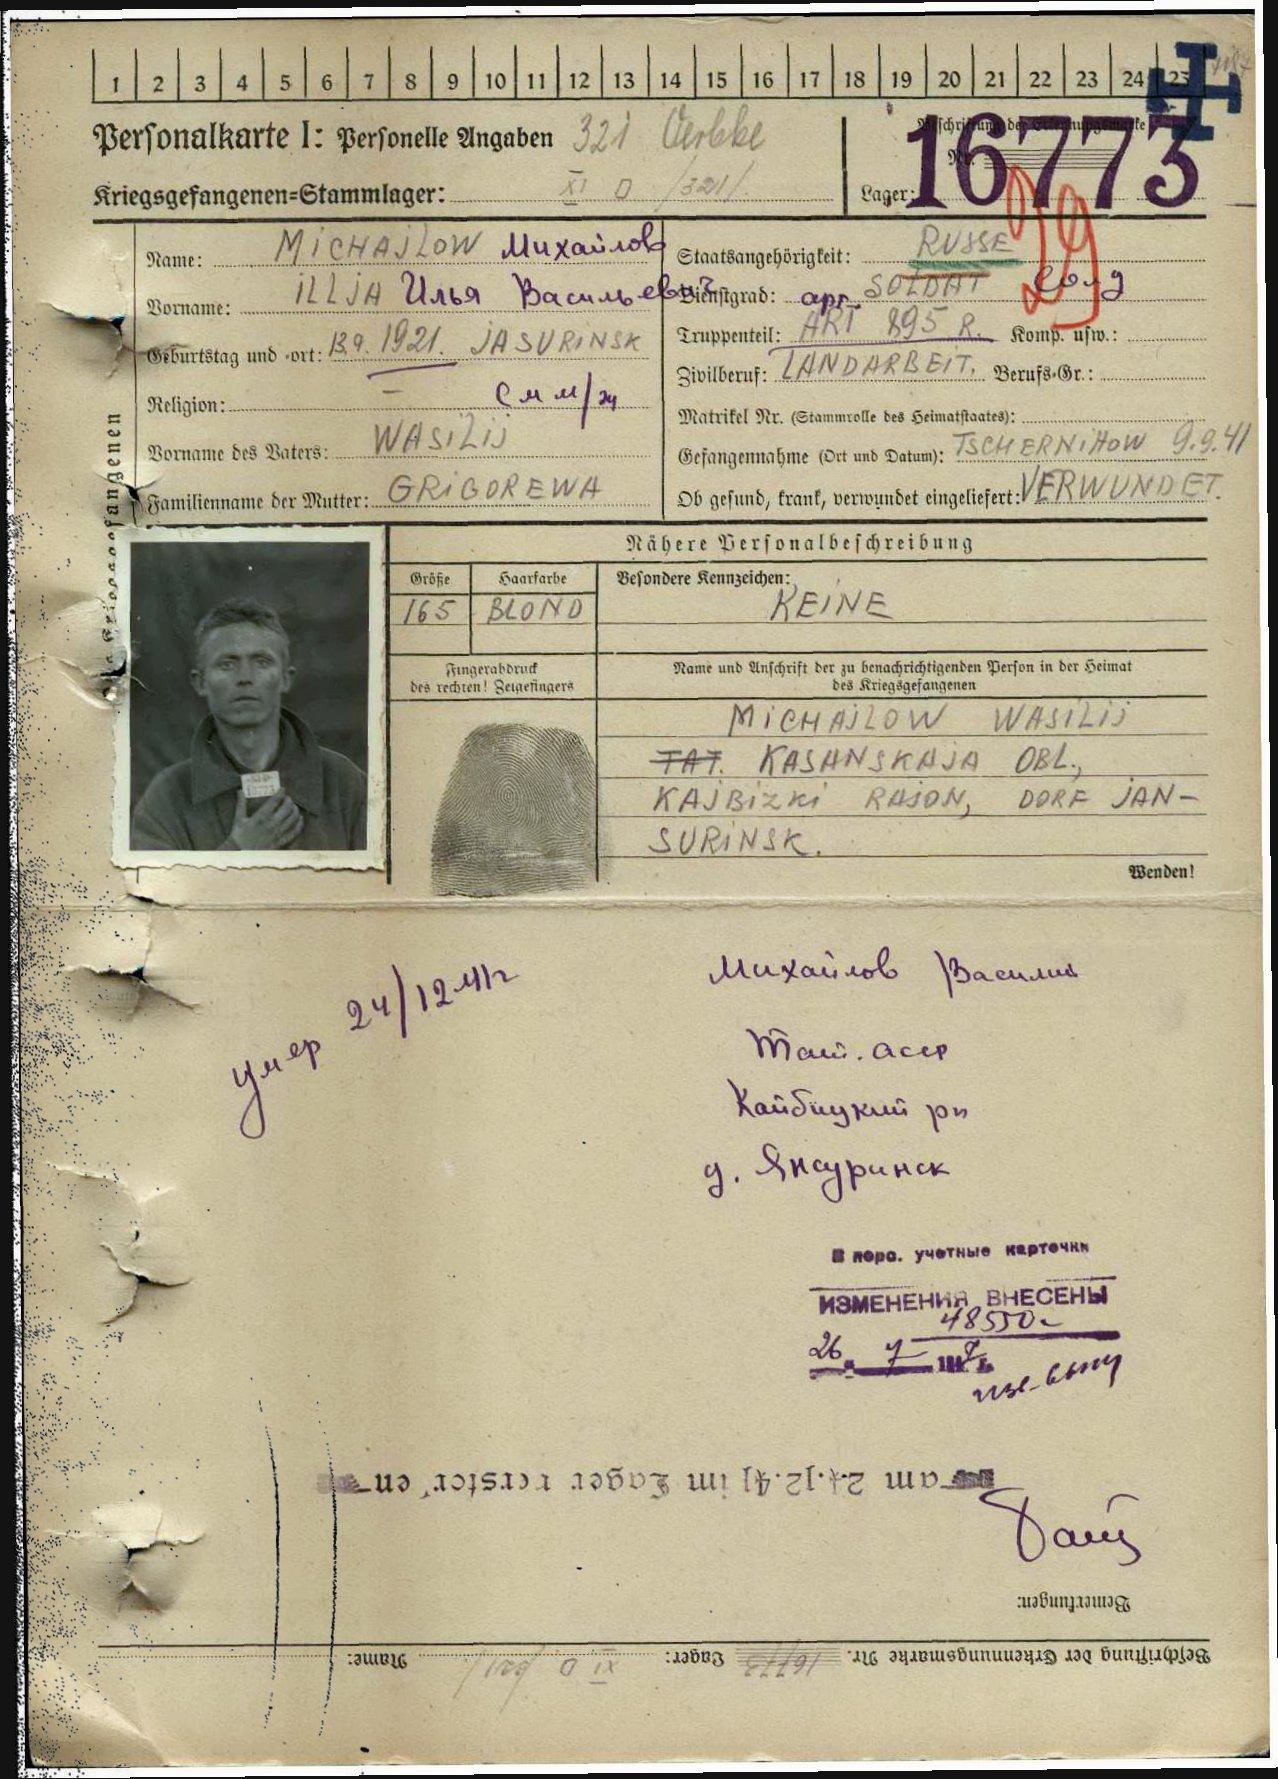 1 2 3 4 5 6 7 8 9 10 11 12 13 14 15 16 17 18 19 20 21 22 23 24 25
Personalkarte I: Personelle Angaben 321 Oerbke
Beschriftung der Erkennungsmarke
Nr. 16773
Kriegsgefangenen=Stammlager: XI D /321/
Lager:
29
Name: MICHAJLOW Михайлов
Vorname: ILLJA Илья Васильевич
Geburtstag und -ort: 13.9.1921. JASURINSK
Religion: –
Vorname des Vaters: WASILIJ
Familienname der Mutter: GRIGOREWA
Staatsangehörigkeit: RUSSE
Dienstgrad: арт. SOLDAT солд
Truppenteil: ART 895 R. Komp. usw.:
Zivilberuf: LANDARBEIT. Berufs-Gr.:
Matrikel Nr. (Stammrolle des Heimatstaates):
Gefangennahme (Ort und Datum): TSCHERNIHOW 9.9.41
Ob gesund, krank, verwundet eingeliefert: VERWUNDET.
des Kriegsgefangenen
Nähere Personalbeschreibung
Größe Haarfarbe Besondere Kennzeichen:
165 BLOND KEINE
Fingerabdruck
des rechten! Zeigefingers
Name und Anschrift der zu benachrichtigenden Person in der Heimat
des Kriegsgefangenen
MICHAJLOW WASILIJ
TAT. KASANSKAJA OBL.,
KAJBIZKI RAJON, DORF JAN-
SURINSK.
Wenden!
умер 24/12 41г
Михайлов Василий
Тат. асср
Кайбицкий рн
д. Янсуринск
В перс. учетные карточки
ИЗМЕНЕНИЯ ВНЕСЕНЫ
48550
26 7
am 24.12.41 im Lager verstorben
Bemerkungen:
Beschriftung der Erkennungsmarke Nr. 16773 Lager: XI D /321/ Name: